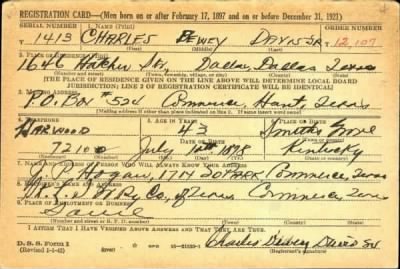 REGISTRATION CARD—(Men born on or after February 17, 1897 and on or before December 31, 1921)
SERIAL NUMBER 1. NAME (Print) ORDER NUMBER
1413 CHARLES DEWEY DAVIS SR. 12,107
(First) (Middle) (Last)
2. PLACE OF RESIDENCE (Print)
1646 St., Dallas, Dallas Texas
(Number and street) (Town, township, village, or city) (County) (State)
[THE PLACE OF RESIDENCE GIVEN ON THE LINE ABOVE WILL DETERMINE LOCAL BOARD
JURISDICTION; LINE 2 OF REGISTRATION CERTIFICATE WILL BE IDENTICAL]
3. MAILING ADDRESS
P.O. Box #524 Commerce, Hunt, Texas
[Mailing address if other than place indicated on line 2. If same insert word same]
4. TELEPHONE 5. AGE IN YEARS 6. PLACE OF BIRTH
HARWOOD 43 Smiths Grove
DATE OF BIRTH
72100 July 14th 1898 Kentucky
7. NAME AND ADDRESS OF PERSON WHO WILL ALWAYS KNOW YOUR ADDRESS
J. P. Hogan, 1714 Commerce, Texas
8. EMPLOYER'S NAME AND ADDRESS
Ry Co, of Texas, Commerce, Texas
9. PLACE OF EMPLOYMENT OR BUSINESS
(Number and street or R. F. D. number) (Town) (County) (State)
I AFFIRM THAT I HAVE VERIFIED ABOVE ANSWERS AND THAT THEY ARE TRUE.
D. S. S. Form 1
(Revised 1-1-42) Charles Dewey Davis Sr.
(Registrant's signature)